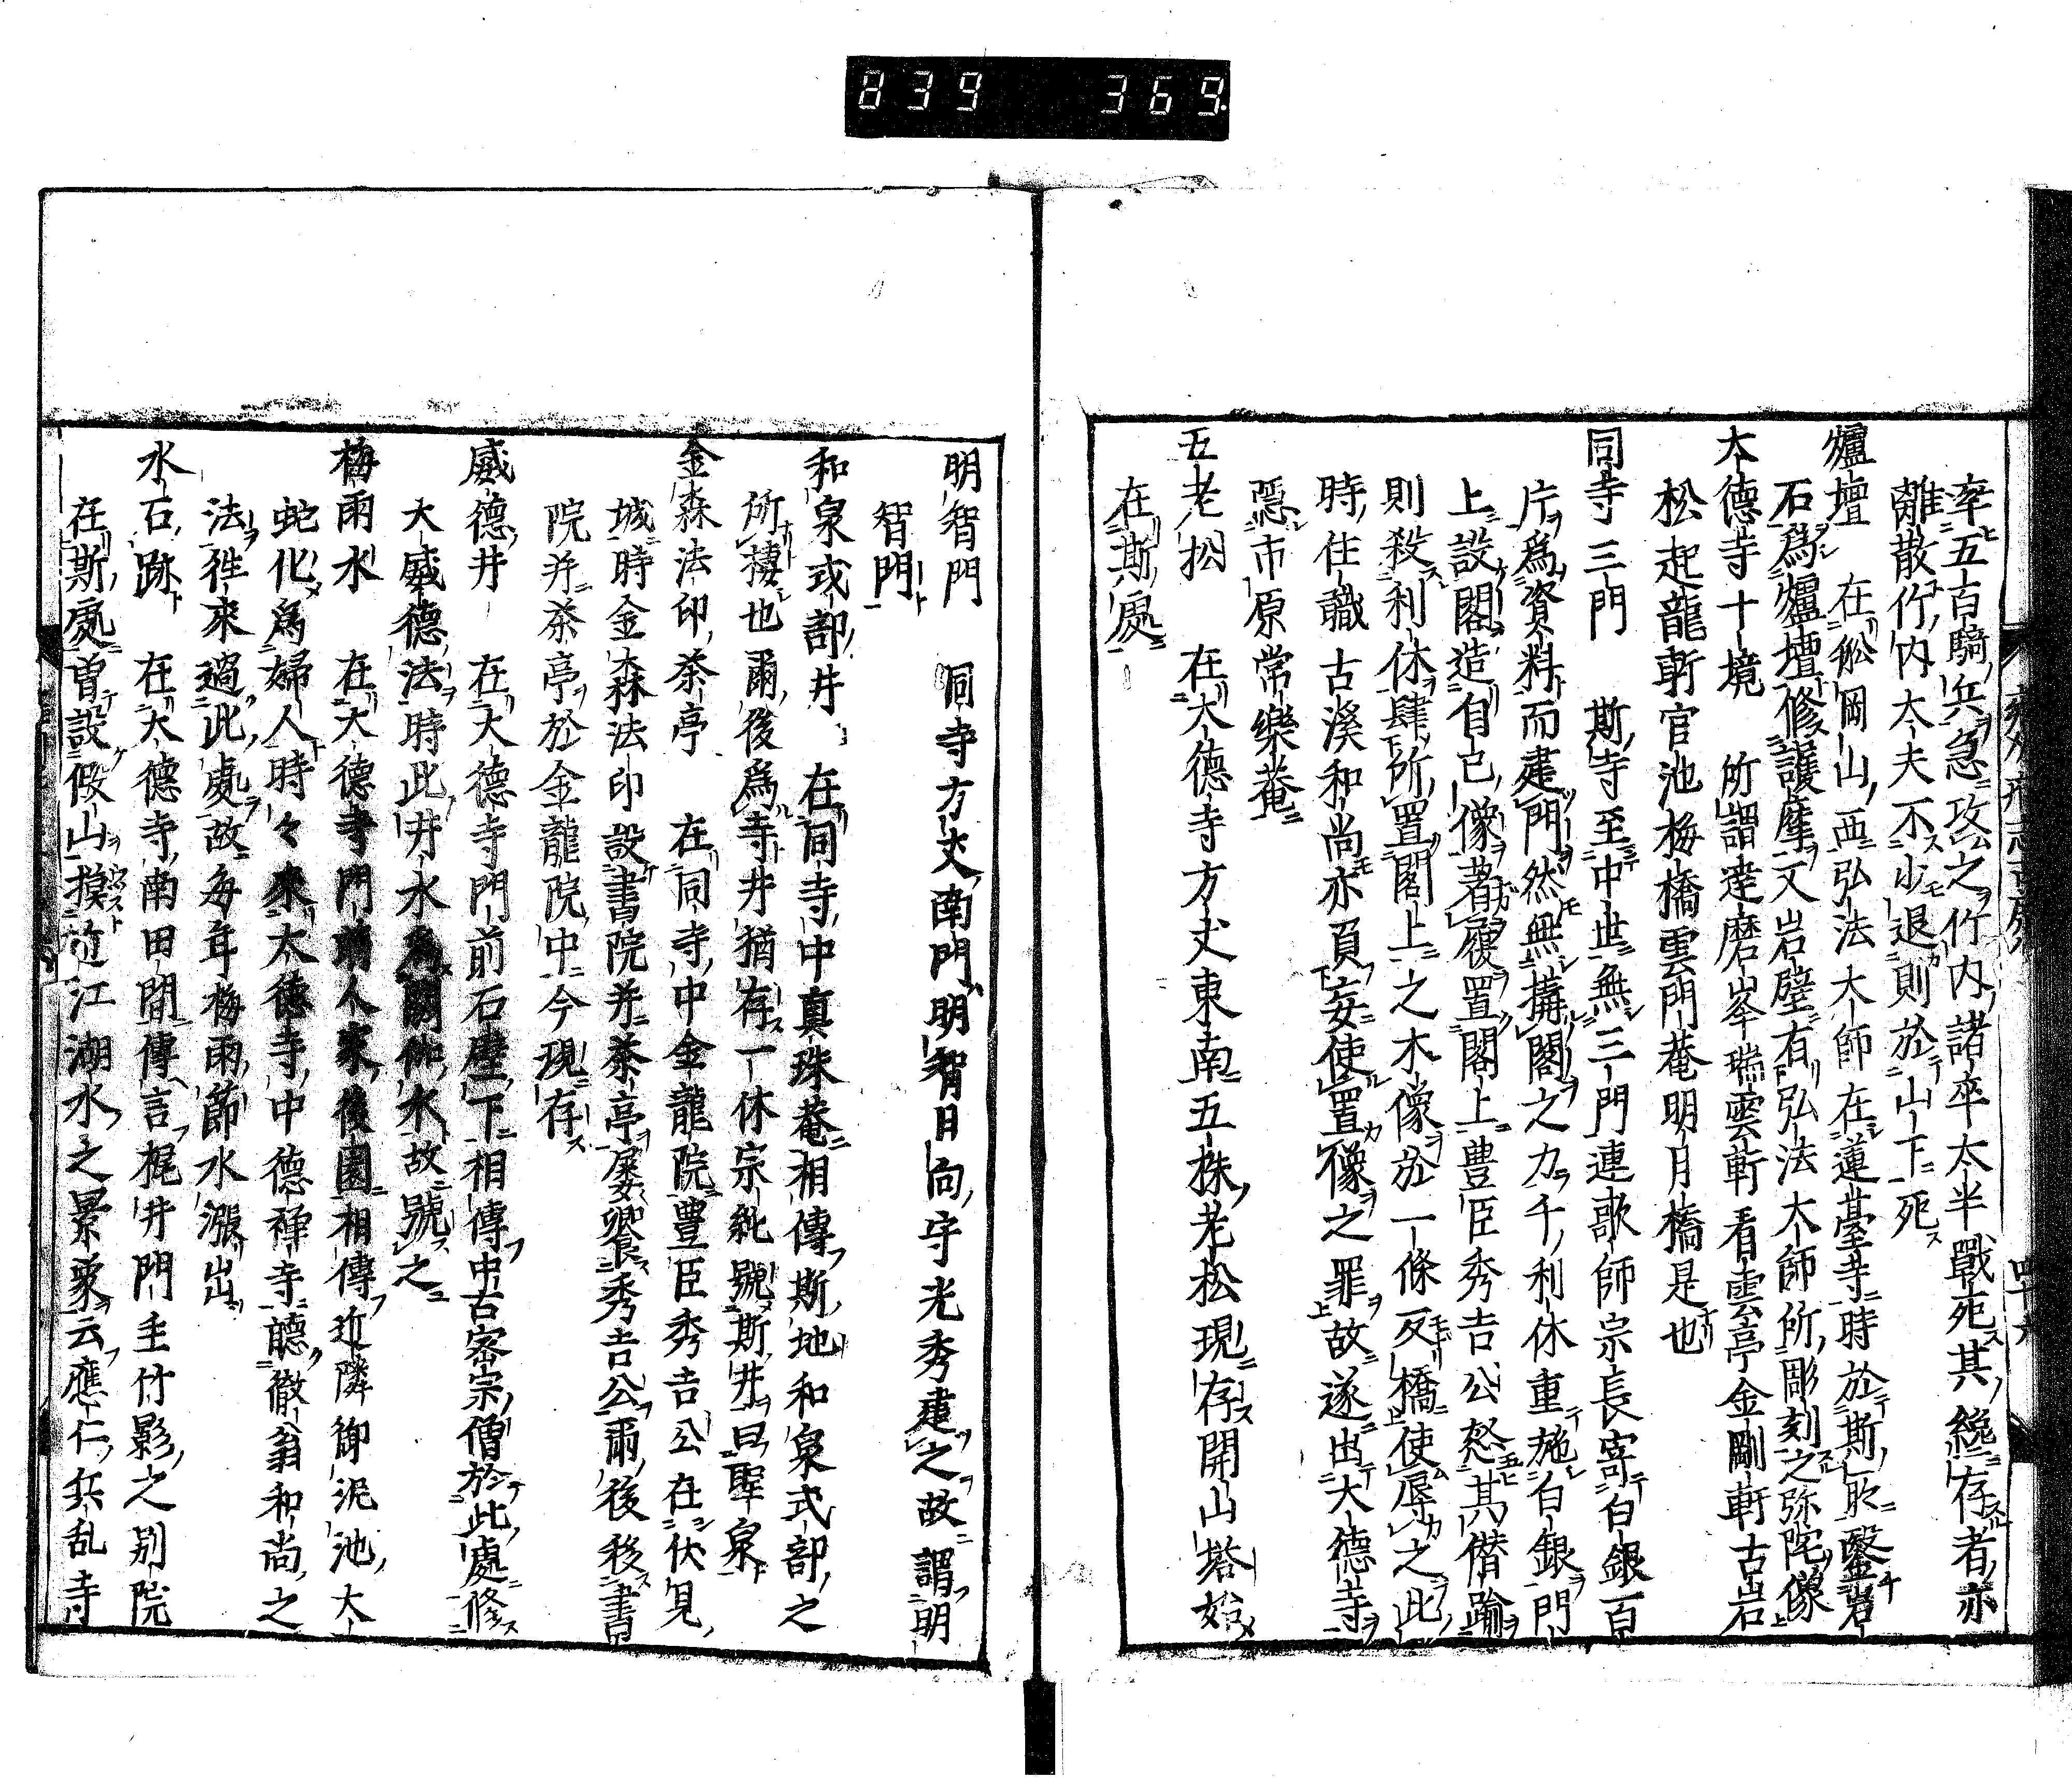 839 369
率五百騎兵急攻之竹内諸卒太半戰死其纔存者亦
離散竹内大夫不少退則於山下死
爐壇 在舩岡山西弘法大師在蓮臺寺時於斯處鑿岩
石爲爐壇修護摩又岩壁有弘法大師所彫刻之弥陀像
大德寺十境 所謂達磨峯瑞雲軒看雲亭金剛軒古岩
松起龍軒官池梅橋雲門菴明月橋是也
同寺三門 斯寺至中世無三門連歌師宗長寄白銀百
片爲資料而建門然無搆閣之力千利休重施白銀門
上設閣造自己像著履置閣上豊臣秀吉公怒其僭踰
則殺利休肆所置閣上之木像於一條反橋使辱之此
時住職古溪和尚亦負妄使置像之罪故遂出大德寺
隱市原常樂菴
五老松 在大德寺方丈東南五株老松現存開山塔始
在斯處
明智門 同寺方丈南門明智日向守光秀建之故謂明
智門
和泉式部井 在同寺中真珠菴相傳斯地和泉式部之
所棲也爾後爲寺井猶存一休宗純號斯井曰聖泉
金森法印茶亭 在同寺中金龍院豊臣秀吉公在伏見
城時金森法印設書院并茶亭屢饗秀吉公爾後移書
院并茶亭於金龍院中今現存
威德井 在大德寺門前石壁下相傳中古密宗僧於此處修
大威德法時此井水爲閼伽水故號之
梅雨水 在大德寺門前人家後園相傳近隣御泥池大
蛇化爲婦人時々來大德寺中德禅寺聽徹翁和尚之
法往來過此處故每年梅雨節水漲出
水石跡 在大德寺南田間傳言梶井門主竹影之別院
在斯處曽設假山摸近江湖水之景象云應仁兵乱寺